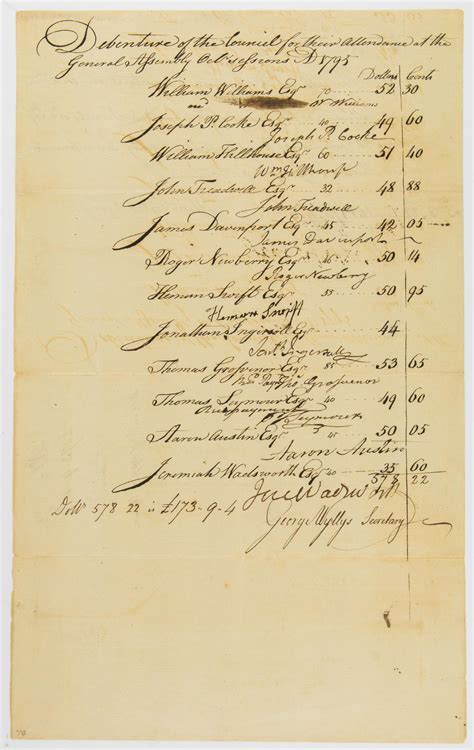 Debenture of the Council for their Attendance at the
General Assembly Octr sessions AD 1795
Dollars Cents
William Williams Esqr 70 52 30
W Williams
Joseph P. Cooke Esqr 40 49 60
Joseph P. Cooke
William Hillhouse Esqr 60 51 40
Wm Hillhouse
John Treadwell Esqr 32 48 88
John Treadwell
James Davenport Esqr 45 42 05
James Davenport
Roger Newberry Esqr 50 14
Roger Newberry
Heman Swift Esqr 55 50 95
Heman Swift
Jonathan Ingersoll Esqr 44
Jonth Ingersoll
Thomas Grosvenor Esqr 85 53 65
Thos Grosvenor
Thomas Seymour Esqr 40 49 60
Seymour
Aaron Austin Esqr 45 50 05
Aaron Austin
Jeremiah Wadsworth Esqr 40 35 60
578 22
Jere Wadsworth
578 22 is £173-9-4
George Wyllys Secretary